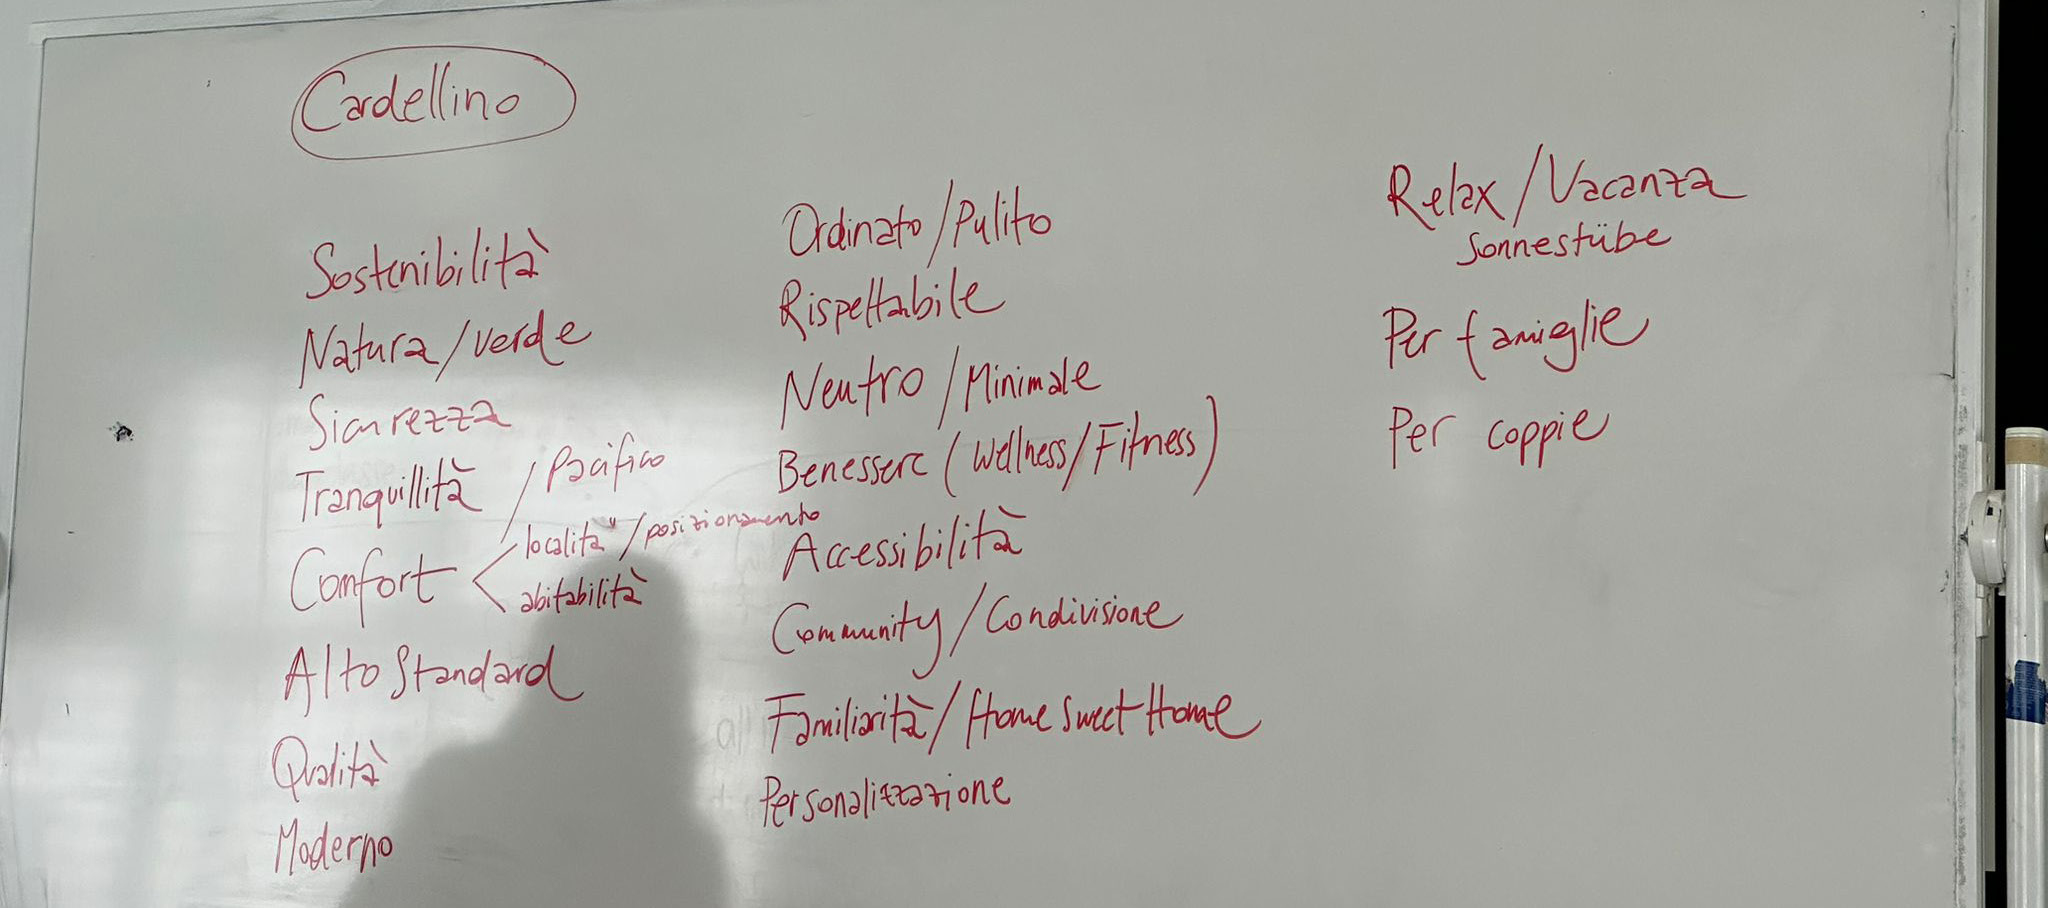 Cardellino
Sostenibilità
Natura/verde
Sicurezza
Tranquillità / Pacifico
Confort < località"/posizionamento
abitabilità
Alto Standard
Qualità
Moderno
Ordinato/Pulito
Rispettabile
Neutro/Minimale
Benessere (Wellness/Fitness)
Accessibilità
Community/Condivisione
Familiarità/Home Sweet Home
Personalizzazione
Relax/Vacanza
Sonnestübe
Per famiglie
Per coppie